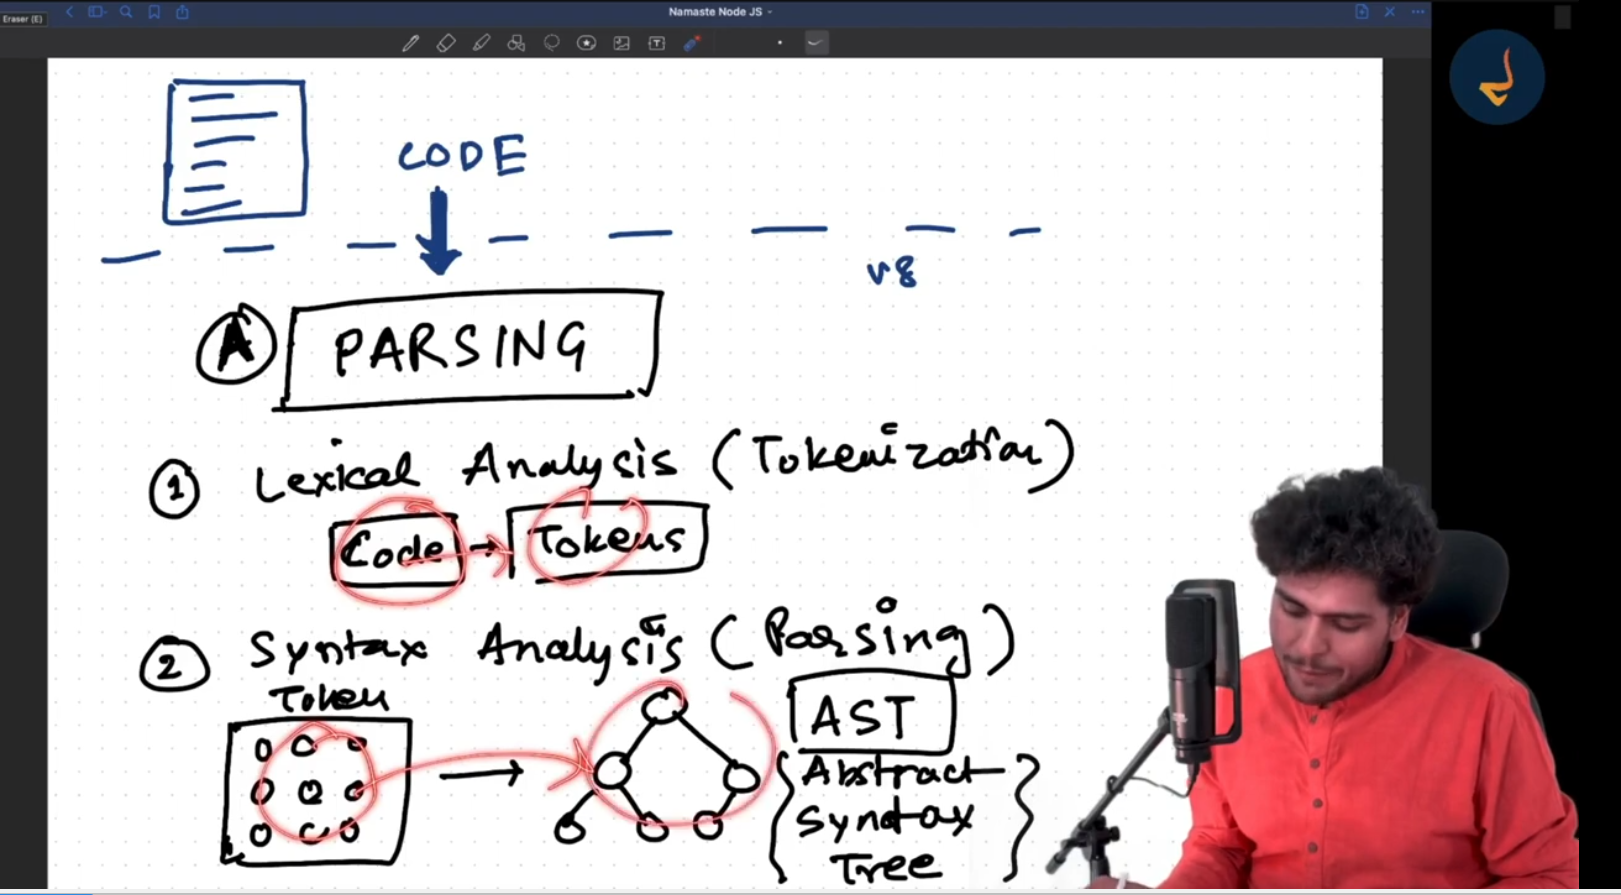 Eraser (E)
Namaste Node JS
CODE
v8
A PARSING
1 Lexical Analysis (Tokenization)
Code → Tokens
2 Syntax Analysis (Parsing)
Token
AST
Abstract
Syntax
Tree